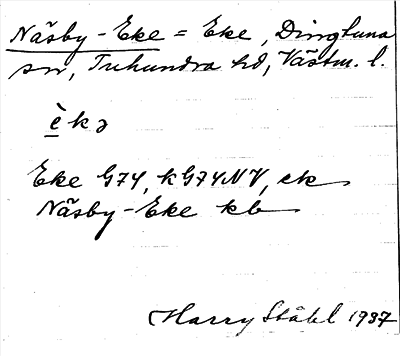 Näsby-Eke = Eke, Dingtuna
sn, Tuhundra hd, Västm. l.
è̱kə
Eke G74, kG74NV, ek
Näsby-Eke kb
Harry Ståhl 1937